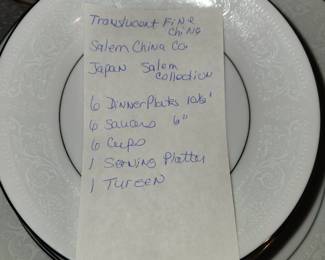 Translucent Fine
China
Salem China Co.
Japan Salem
Collection
6 Dinner Plates 10½"
6 Saucers 6"
6 Cups
1 Serving Platter
1 Tureen